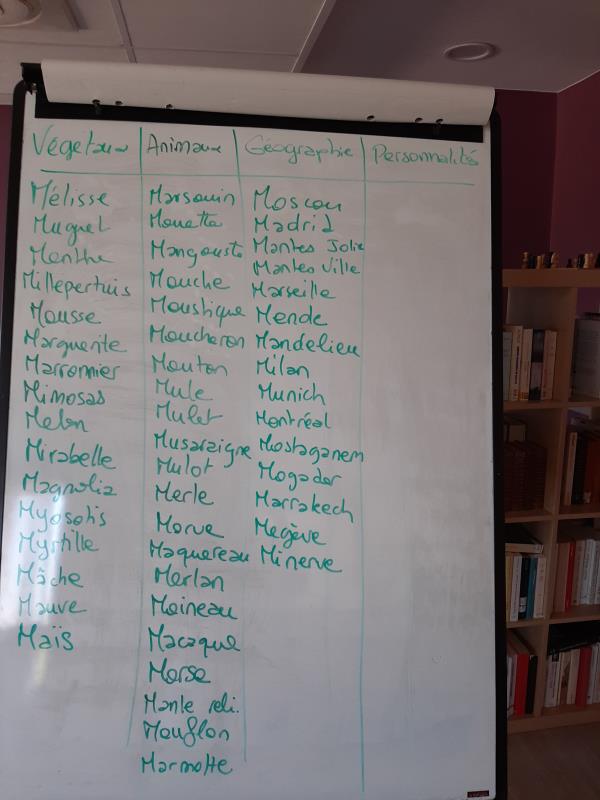 Végétaux
Animaux
Géographie
Personnalités
Mélisse
Muguet
Menthe
Millepertuis
Mousse
Marguerite
Marronnier
Mimosas
Melon
Mirabelle
Magnolia
Myosotis
Myrtille
Mâche
Mauve
Maïs
Marsouin
Mouette
Mangouste
Mouche
Moustique
Moucheron
Mouton
Mule
Mulet
Musaraigne
Mulot
Merle
Morue
Maquereau
Merlan
Moineau
Macaque
Morse
Mante reli.
Mouflon
Marmotte
Moscou
Madrid
Mantes Jolie
Mantes Ville
Marseille
Mende
Mandelieu
Milan
Munich
Montréal
Mostaganem
Mogador
Marrakech
Megève
Minerve